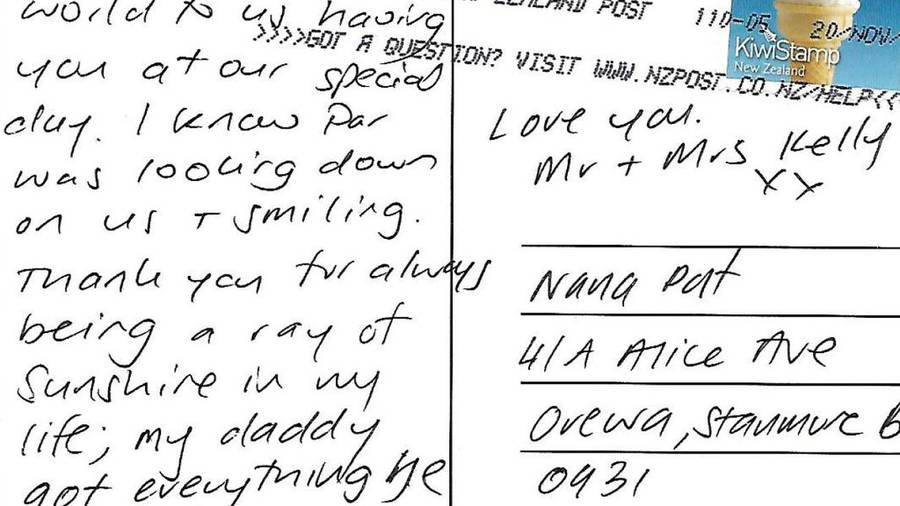 world to us having
you at our special
day. I know Par
was looking down
on us + smiling.
Thank you for always
being a ray of
Sunshine in my
life; my daddy
got everything he
ZEALAND POST 110-05 20/NOV/
>>>>GOT A QUESTION? VISIT WWW.NZPOST.CO.NZ/HELP<<
KiwiStamp
New Zealand
Love you.
Mr + Mrs Kelly
xx
Nana Pat
41A Alice Ave
Orewa, Stanmore B
0931